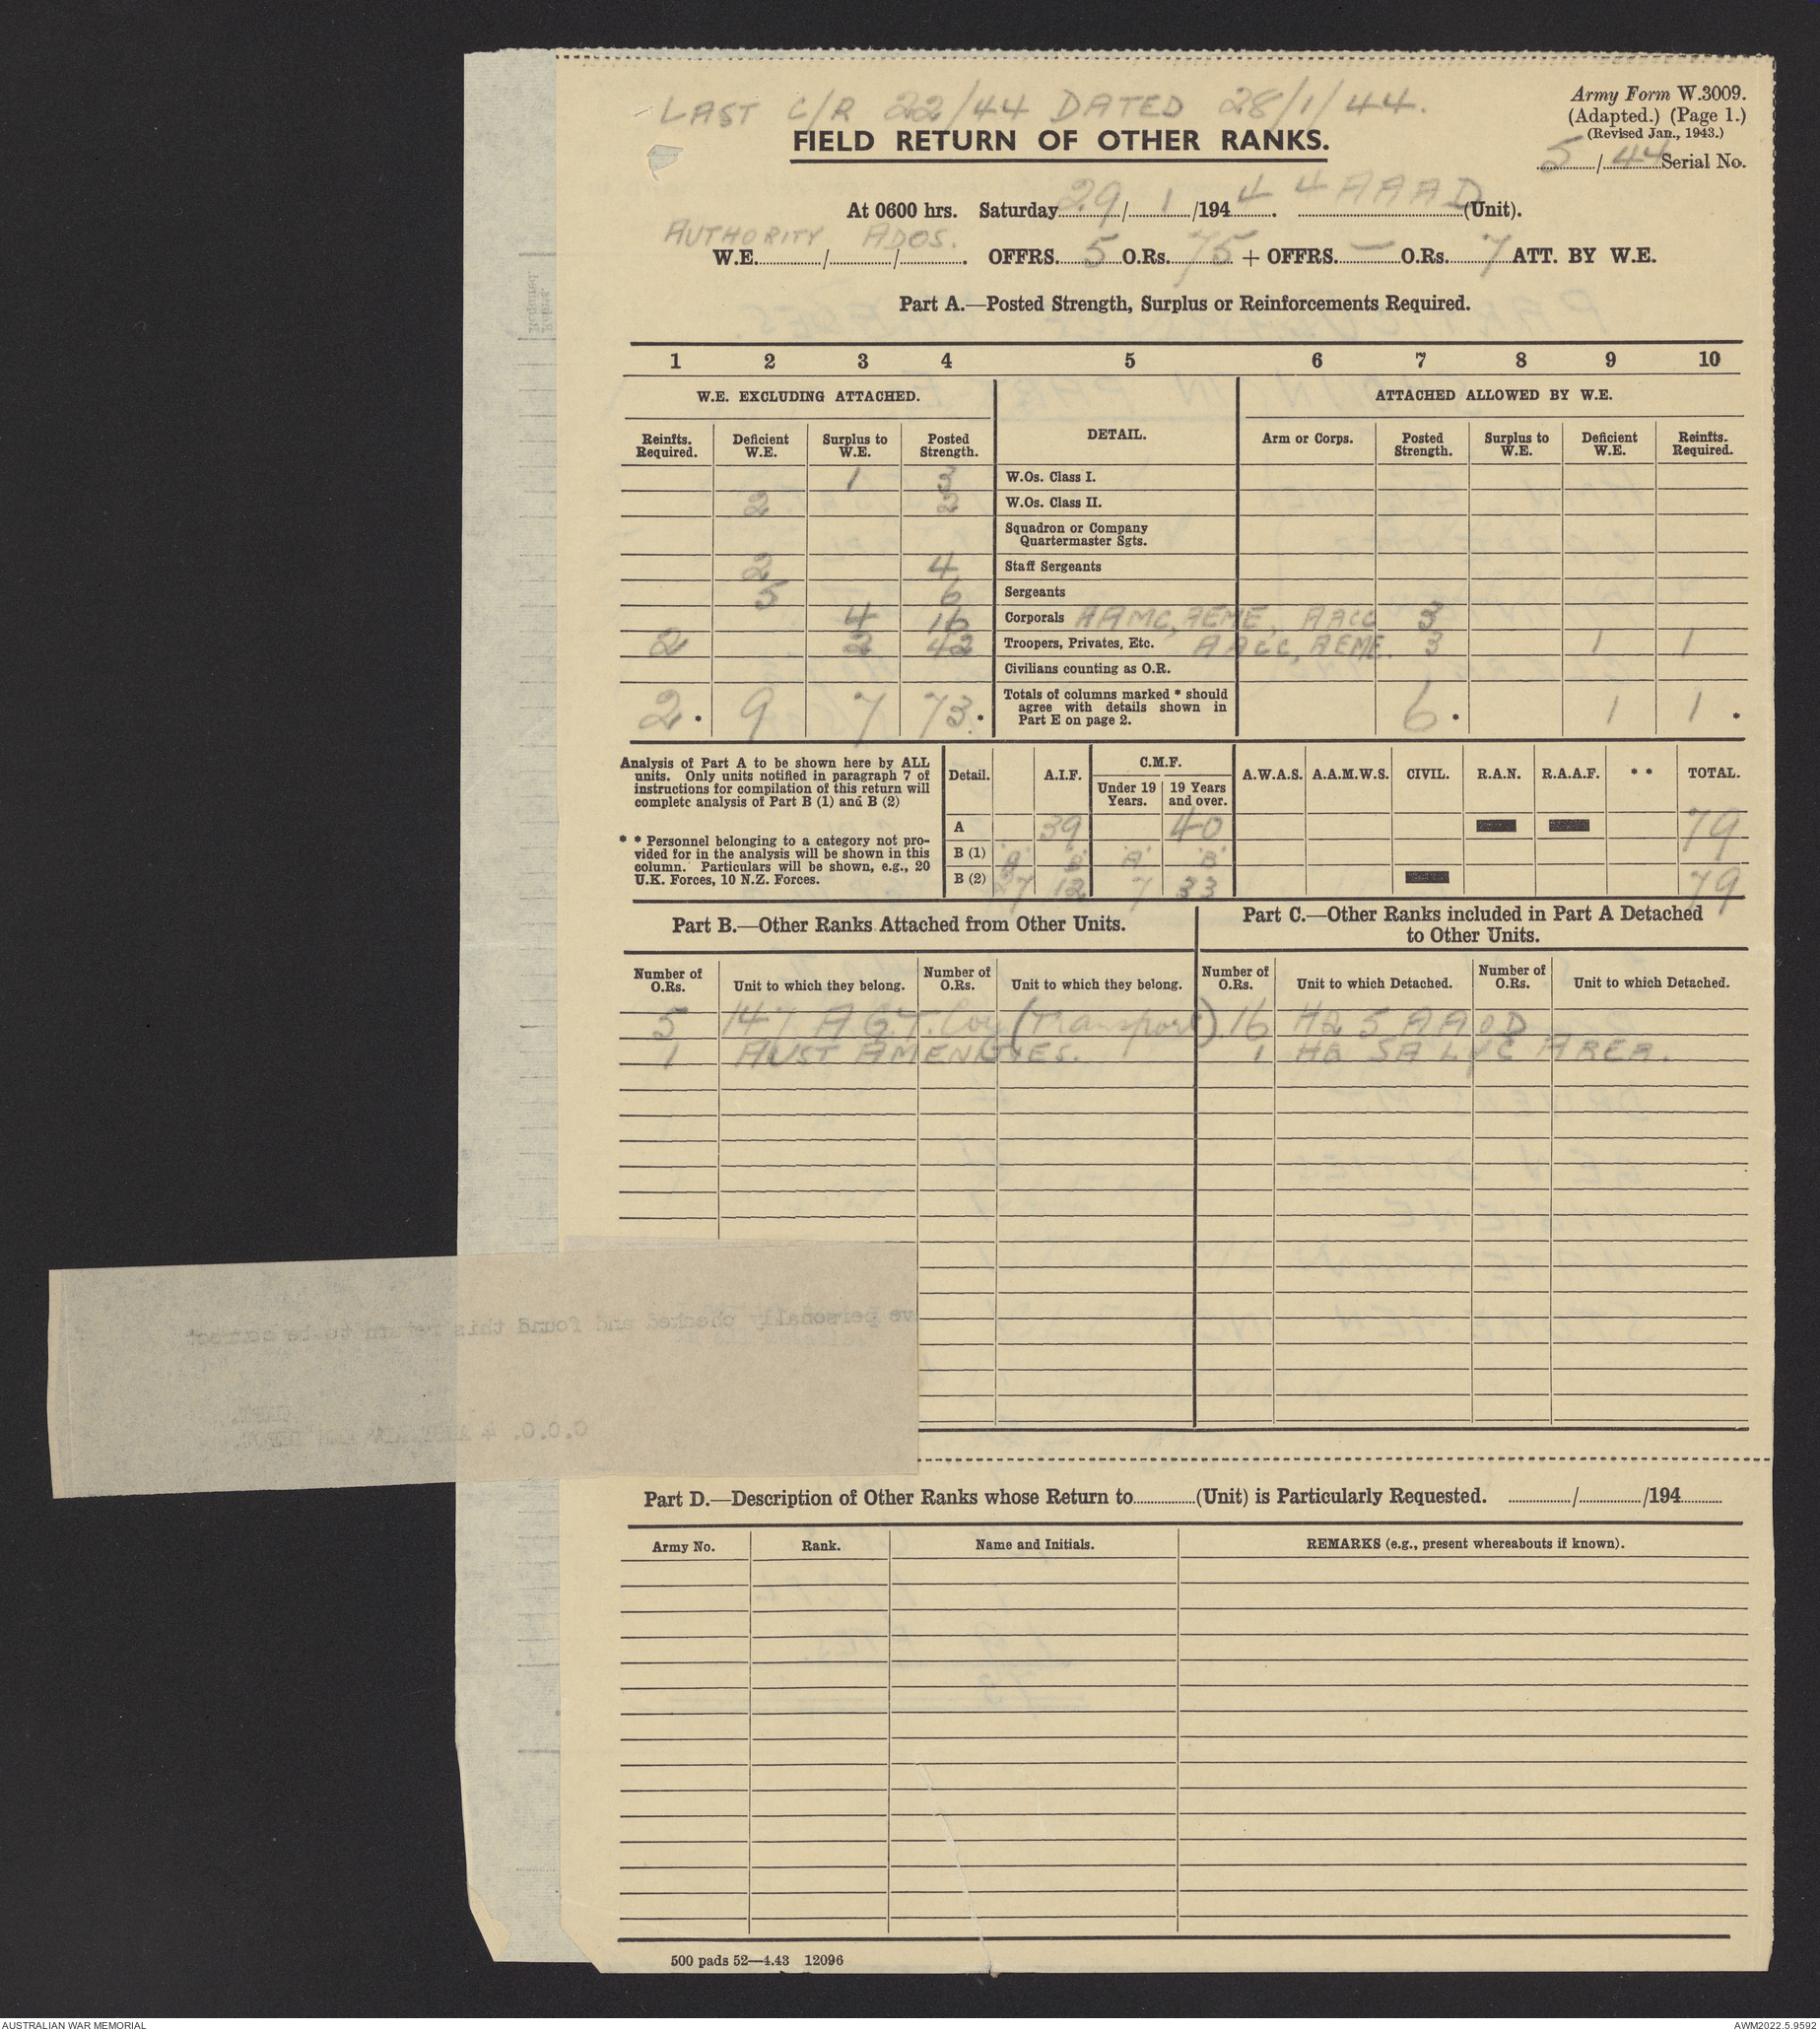 LAST C/R 22/44 DATED 28/1/44.
Army Form W.3009.
(Adapted.) (Page 1.)
(Revised Jan., 1943.)
FIELD RETURN OF OTHER RANKS.
5/44 Serial No.
At 0600 hrs. Saturday 29/1/1944. 4 AAAD (Unit).
AUTHORITY ADOS.
W.E......../......../......... OFFRS. 5 O.Rs. 75 + OFFRS. — O.Rs. 7 ATT. BY W.E.
Part A.—Posted Strength, Surplus or Reinforcements Required.
1 2 3 4 5 6 7 8 9 10
W.E. EXCLUDING ATTACHED. DETAIL. ATTACHED ALLOWED BY W.E.
Reinfts. Required. Deficient W.E. Surplus to W.E. Posted Strength. Arm or Corps. Posted Strength. Surplus to W.E. Deficient W.E. Reinfts. Required.
1 3 W.Os. Class I.
2 2 W.Os. Class II.
Squadron or Company
Quartermaster Sgts.
2 4 Staff Sergeants
5 6 Sergeants
4 16 Corporals AAMC, AEME, AACC 3
2 2 42 Troopers, Privates, Etc. AACC, AEME. 3 1 1
Civilians counting as O.R.
2 . 9 7 73. * Totals of columns marked * should agree with details shown in Part E on page 2. 6 * 1 1 *
Analysis of Part A to be shown here by ALL
units. Only units notified in paragraph 7 of
instructions for compilation of this return will
complete analysis of Part B (1) and B (2)
* * Personnel belonging to a category not pro-
vided for in the analysis will be shown in this
column. Particulars will be shown, e.g., 20
U.K. Forces, 10 N.Z. Forces.
Detail. A.I.F. C.M.F. Under 19 Years. 19 Years and over. A.W.A.S. A.A.M.W.S. CIVIL. R.A.N. R.A.A.F. * * TOTAL.
A 39 40 79
B (1) 'A' 'B' 'A' 'B'
B (2) 27 12 7 33 79
Part B.—Other Ranks Attached from Other Units.
Part C.—Other Ranks included in Part A Detached
to Other Units.
Number of O.Rs. Unit to which they belong. Number of O.Rs. Unit to which they belong. Number of O.Rs. Unit to which Detached. Number of O.Rs. Unit to which Detached.
5 147 A.G.T. Coy (Transport). 16 HQ 5 AAOD
1 AUST AMENITIES. 1 HQ SA L of C AREA.
ve personally checked and found this return to be correct
CAPT.
O.O.O. 4
Part D.—Description of Other Ranks whose Return to............(Unit) is Particularly Requested. ............/............/194.........
Army No. Rank. Name and Initials. REMARKS (e.g., present whereabouts if known).
500 pads 52—4.43 12096
AUSTRALIAN WAR MEMORIAL
AWM2022.5.9592